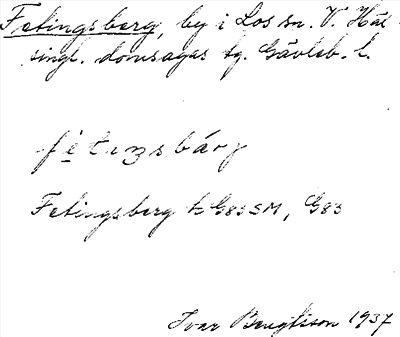 Fetingsberg, by i Los sn. V. Häl-
singl. domsagas tg. Gävleb. l.
fètiŋsbárj
Fetingsberg h G83SM, G83
Ivar Bengtsson 1937